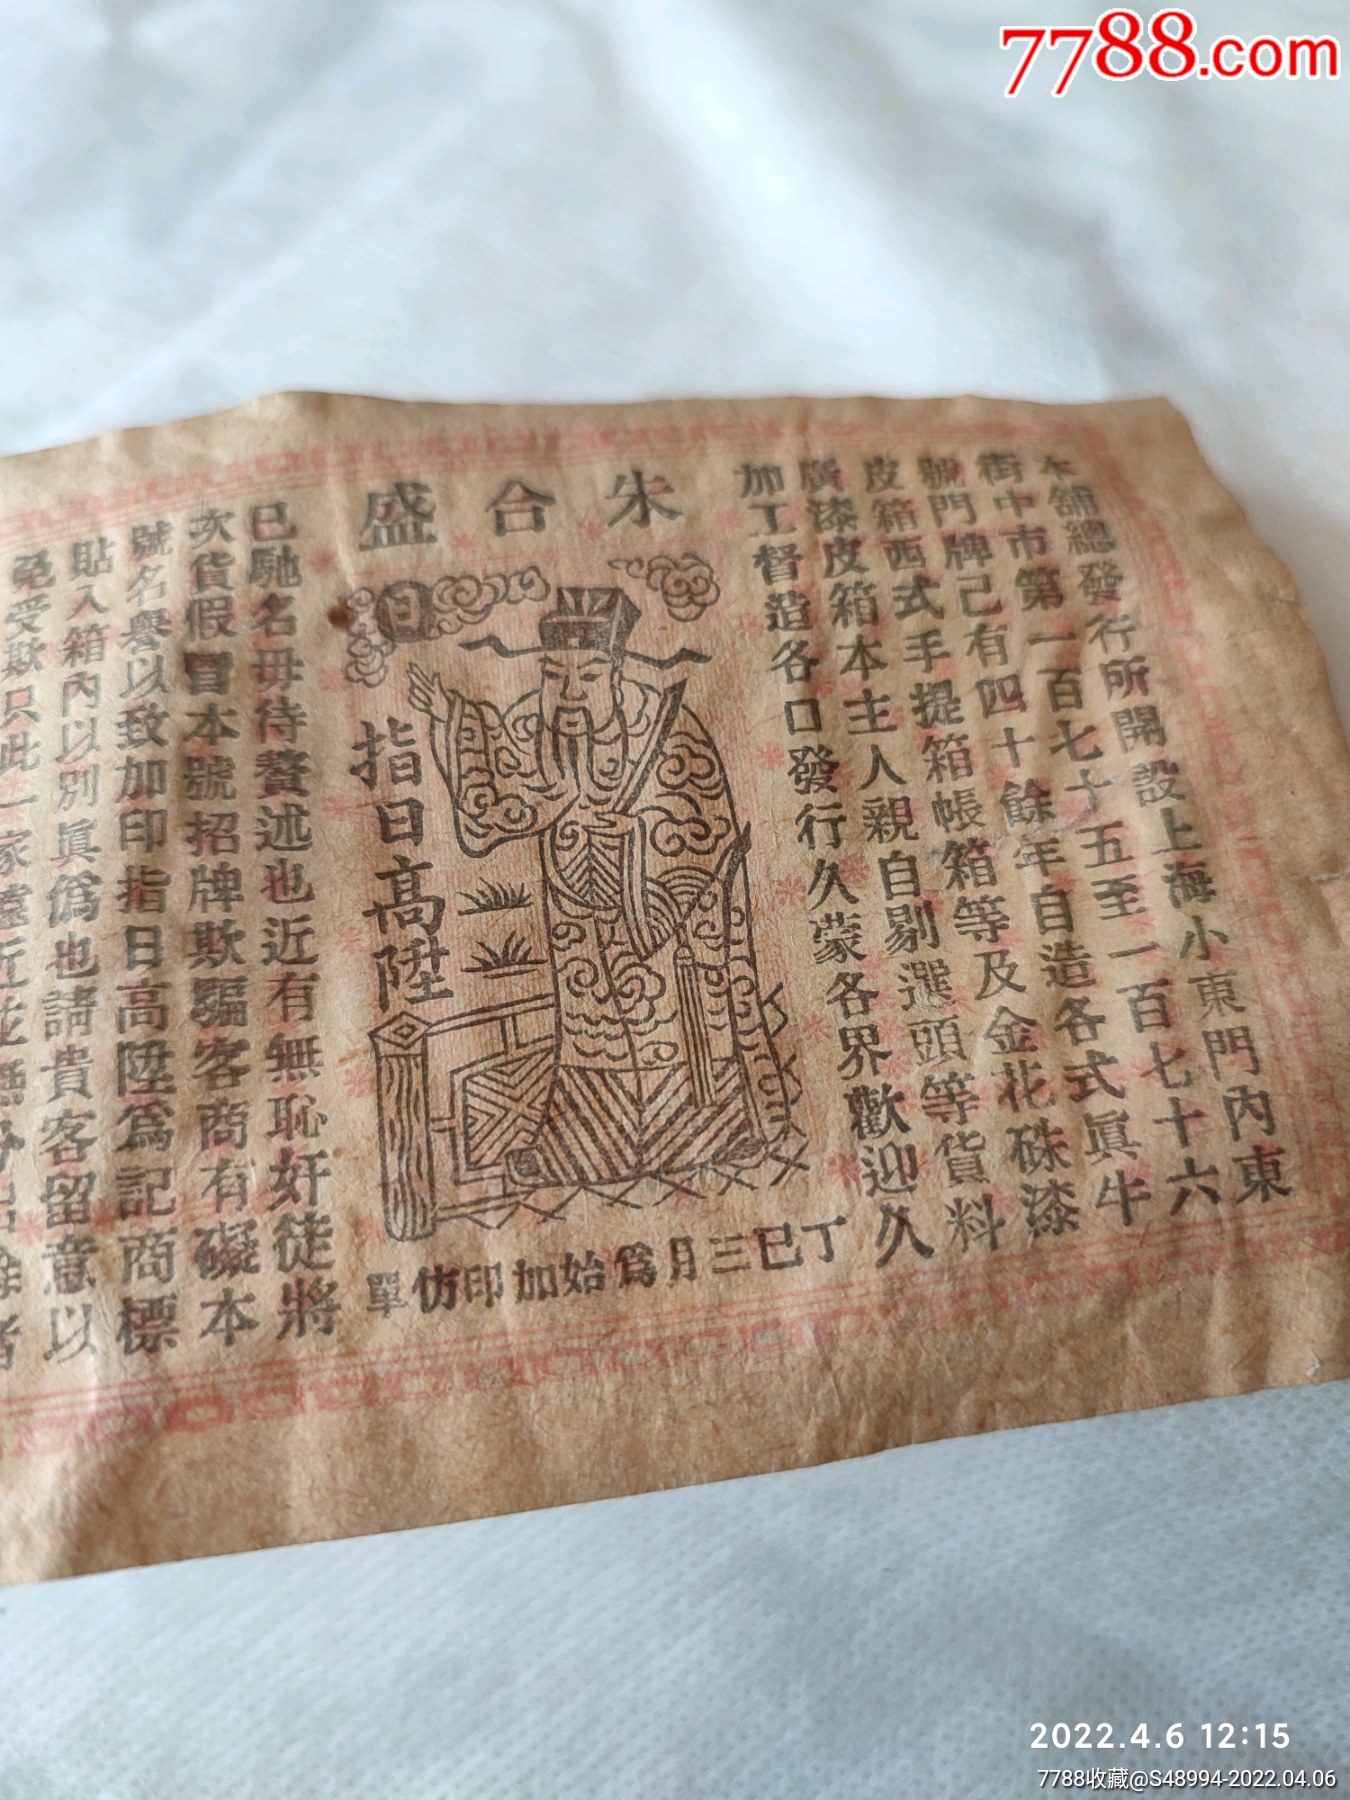 7788.com
本舖總發行所開設上海小東門內東
街中市第一百七十五至一百七十六
號門牌己有四十餘年自造各式眞牛
皮箱西式手提箱帳箱等及金花硃漆
廣漆皮箱本主人親自剔選頭等貨料
加工督造各口發行久蒙各界歡迎久
朱合盛
日
指日高陞
丁巳三月爲始加印仿單
已馳名毋待贅述也近有無恥奸徒將
次貨假冒本號招牌欺騙客商有礙本
號名譽以致加印指日高陞爲記商標
貼入箱內以別眞僞也請貴客留意以
免受欺只此一家遠近並無分
2022.4.6 12:15
7788收藏@S48994-2022.04.06